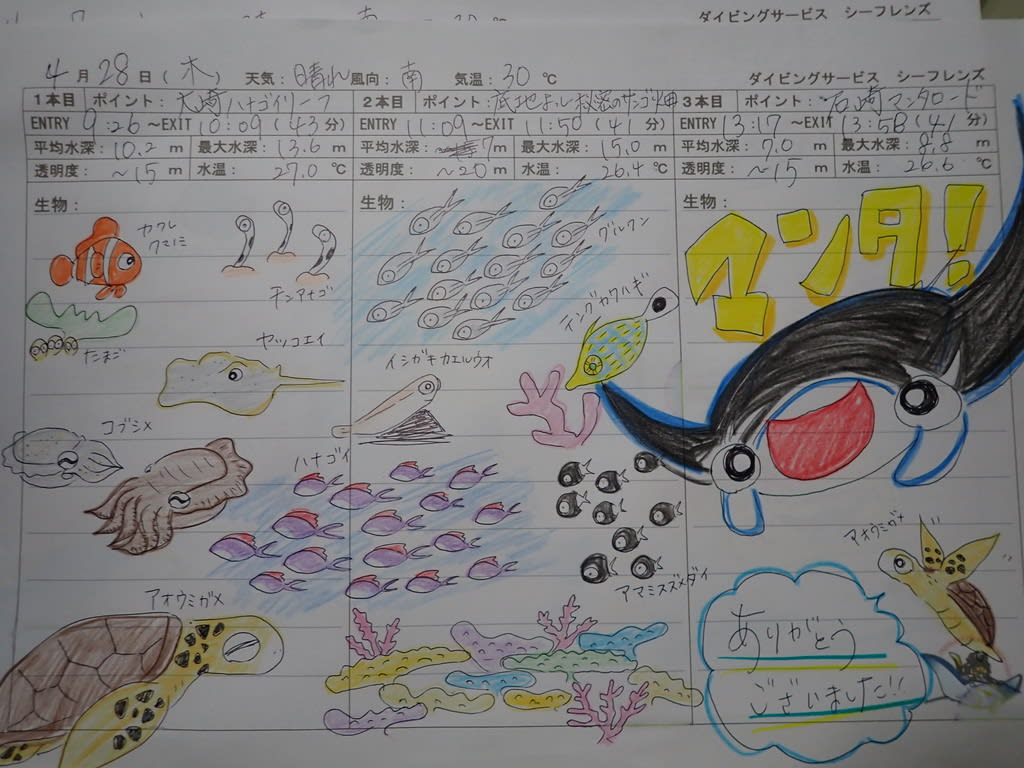 ダイビングサービス シーフレンズ
4月28日(木) 天気:晴れ 風向:南 気温:30℃ ダイビングサービス シーフレンズ
1本目 ポイント:大崎ハナゴイリーフ
ENTRY 9:26~EXIT 10:09(43分)
平均水深:10.2m 最大水深:13.6m
透明度:~15m 水温:27.0℃
生物:
カクレ
クマノミ
チンアナゴ
たまご
ヤッコエイ
コブシメ
ハナゴイ
アオウミガメ
2本目 ポイント:
ENTRY 11:09~EXIT 11:50(41分)
平均水深:7m 最大水深:15.0m
透明度:~20m 水温:26.4℃
生物:
グルクン
テングカワハギ
イシガキカエルウオ
アマミスズメダイ
3本目 ポイント:石崎マンタロード
ENTRY 13:17~EXIT 13:58(41分)
平均水深:7.0m 最大水深:8.8m
透明度:~15m 水温:26.6℃
生物:
マンタ!
アオウミガメ
ありがとう
ございました!!